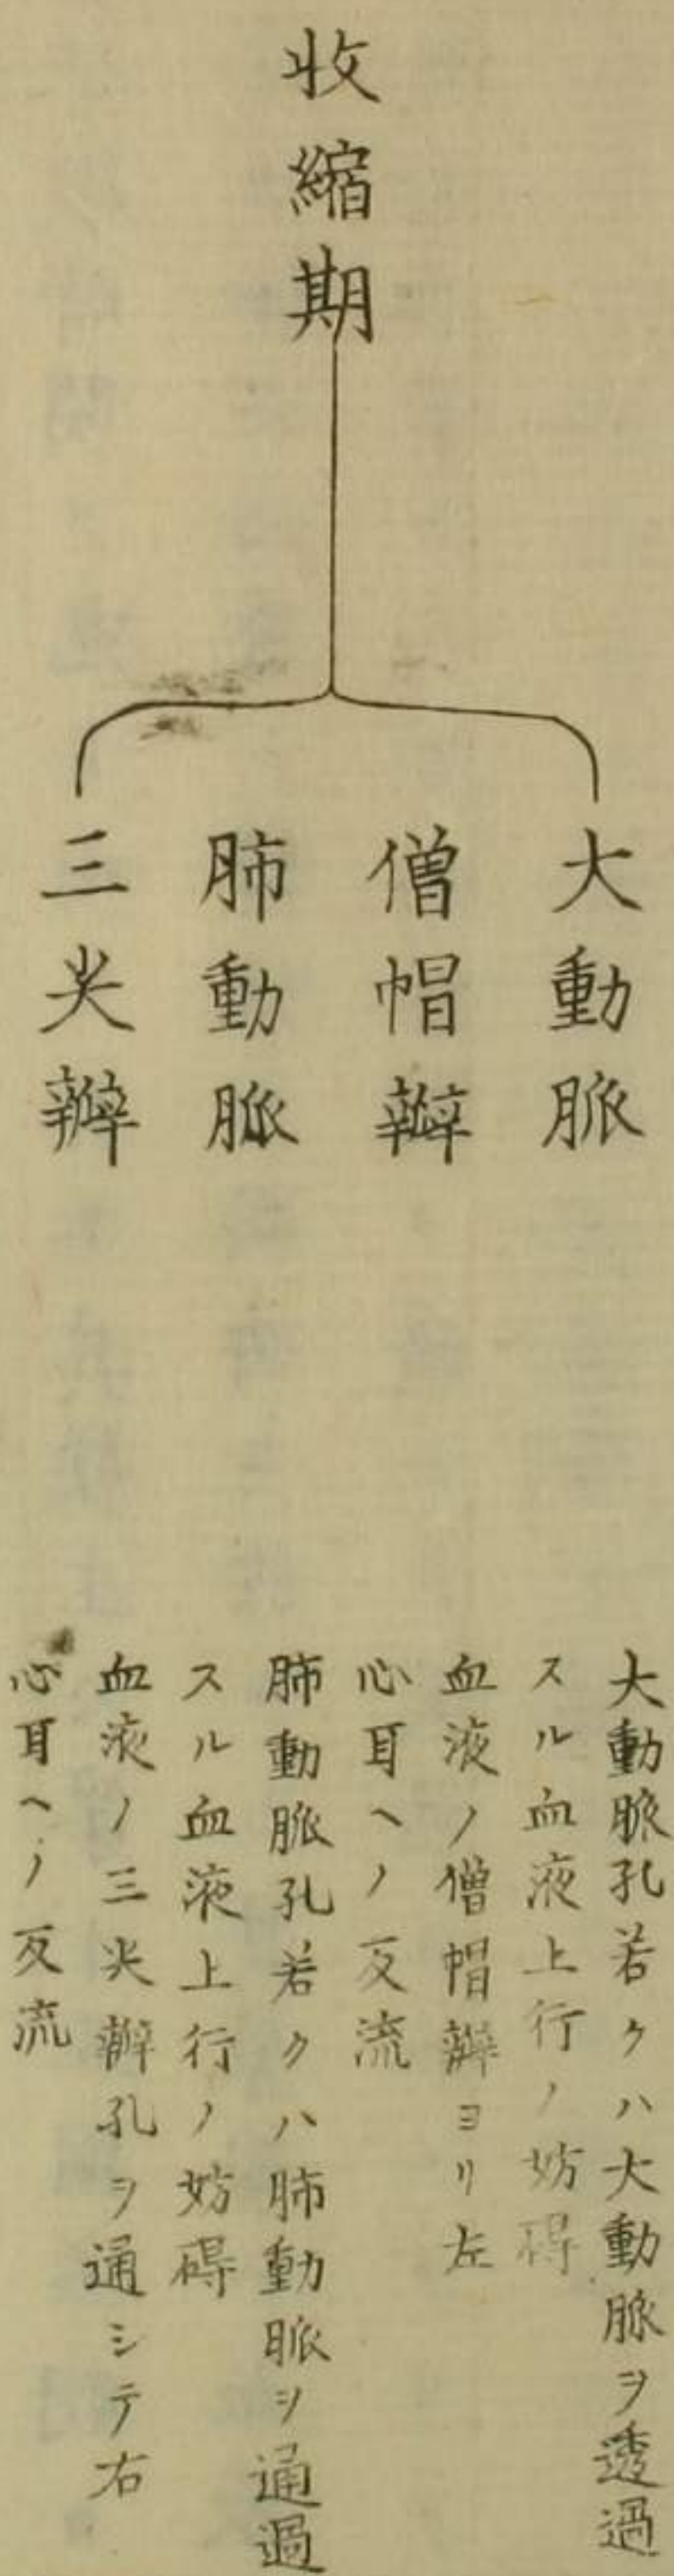 收縮期
大動脈
僧帽辦
肺動脈
三尖辦
大動脈孔若クハ大動脈ヲ透過
スル血液上行ノ妨碍
血液ノ僧帽辦ヨリ左
心耳ヘノ反流
肺動脈孔若クハ肺動脈ヲ通過
スル血液上行ノ妨碍
血液ノ三尖辦孔ヲ通シテ右
心耳ヘノ反流